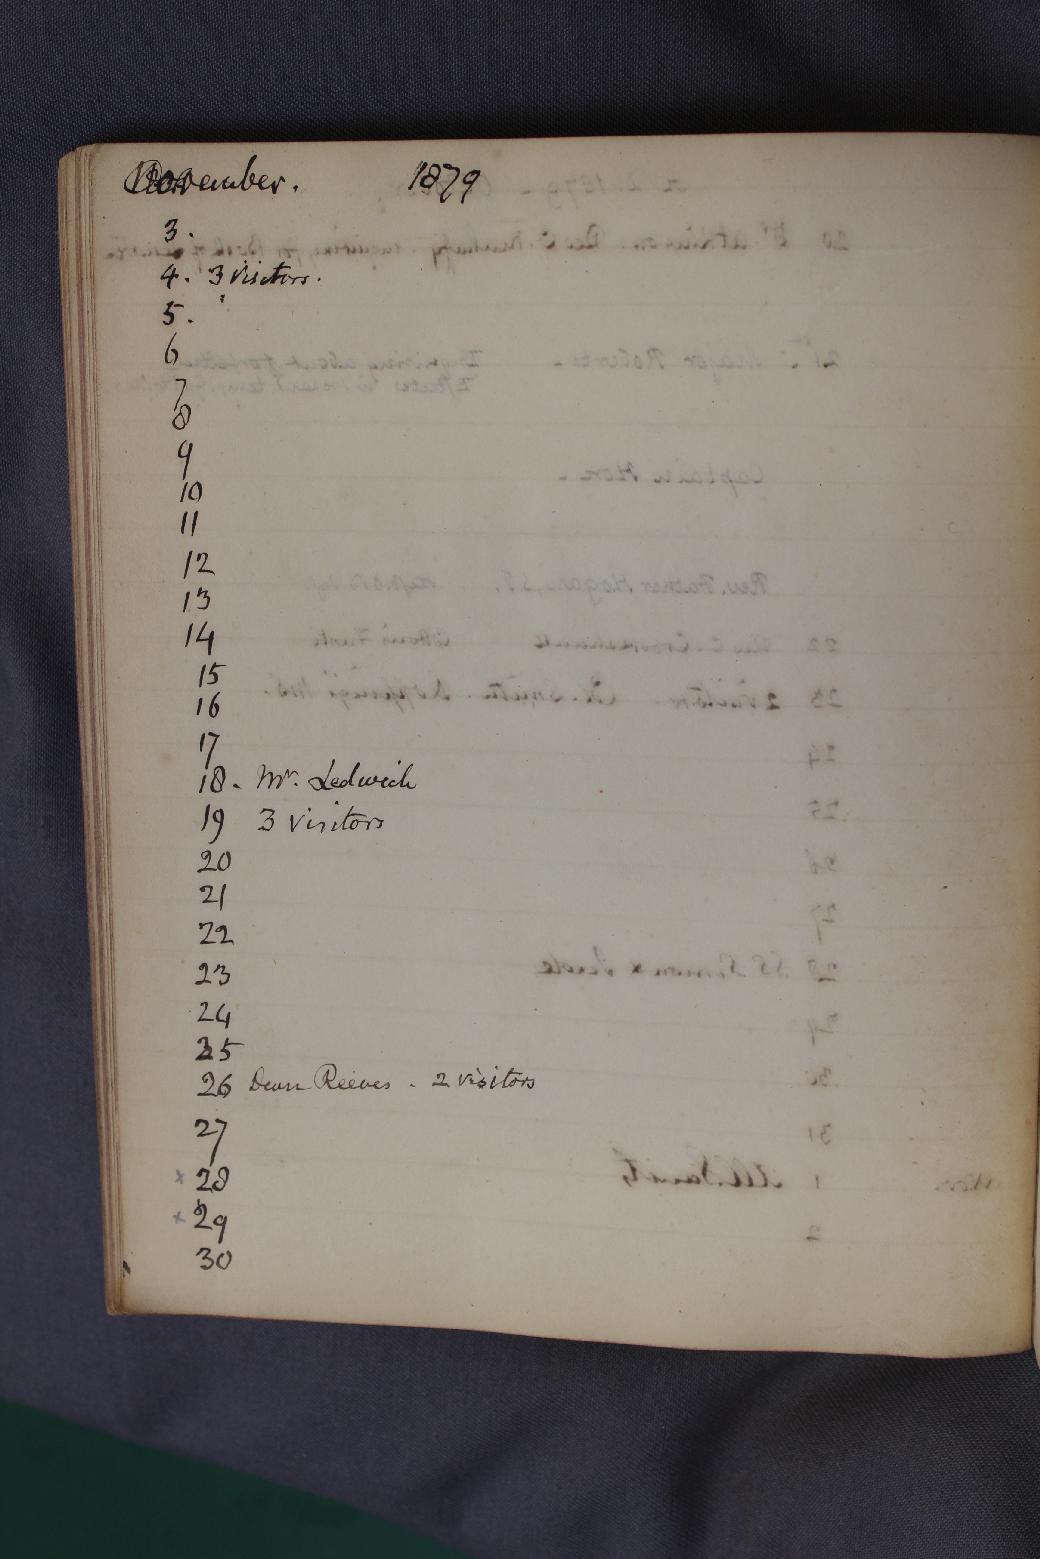 November. 1879
3.
4. 3 visitors.
5.
6
7
8
9
10
11
12
13
14
15
16
17
18. Mr. Ledwich
19 3 visitors
20
21
22
23
24
25
26 Dean Reeves - 2 visitors
27
x 28
x 29
30